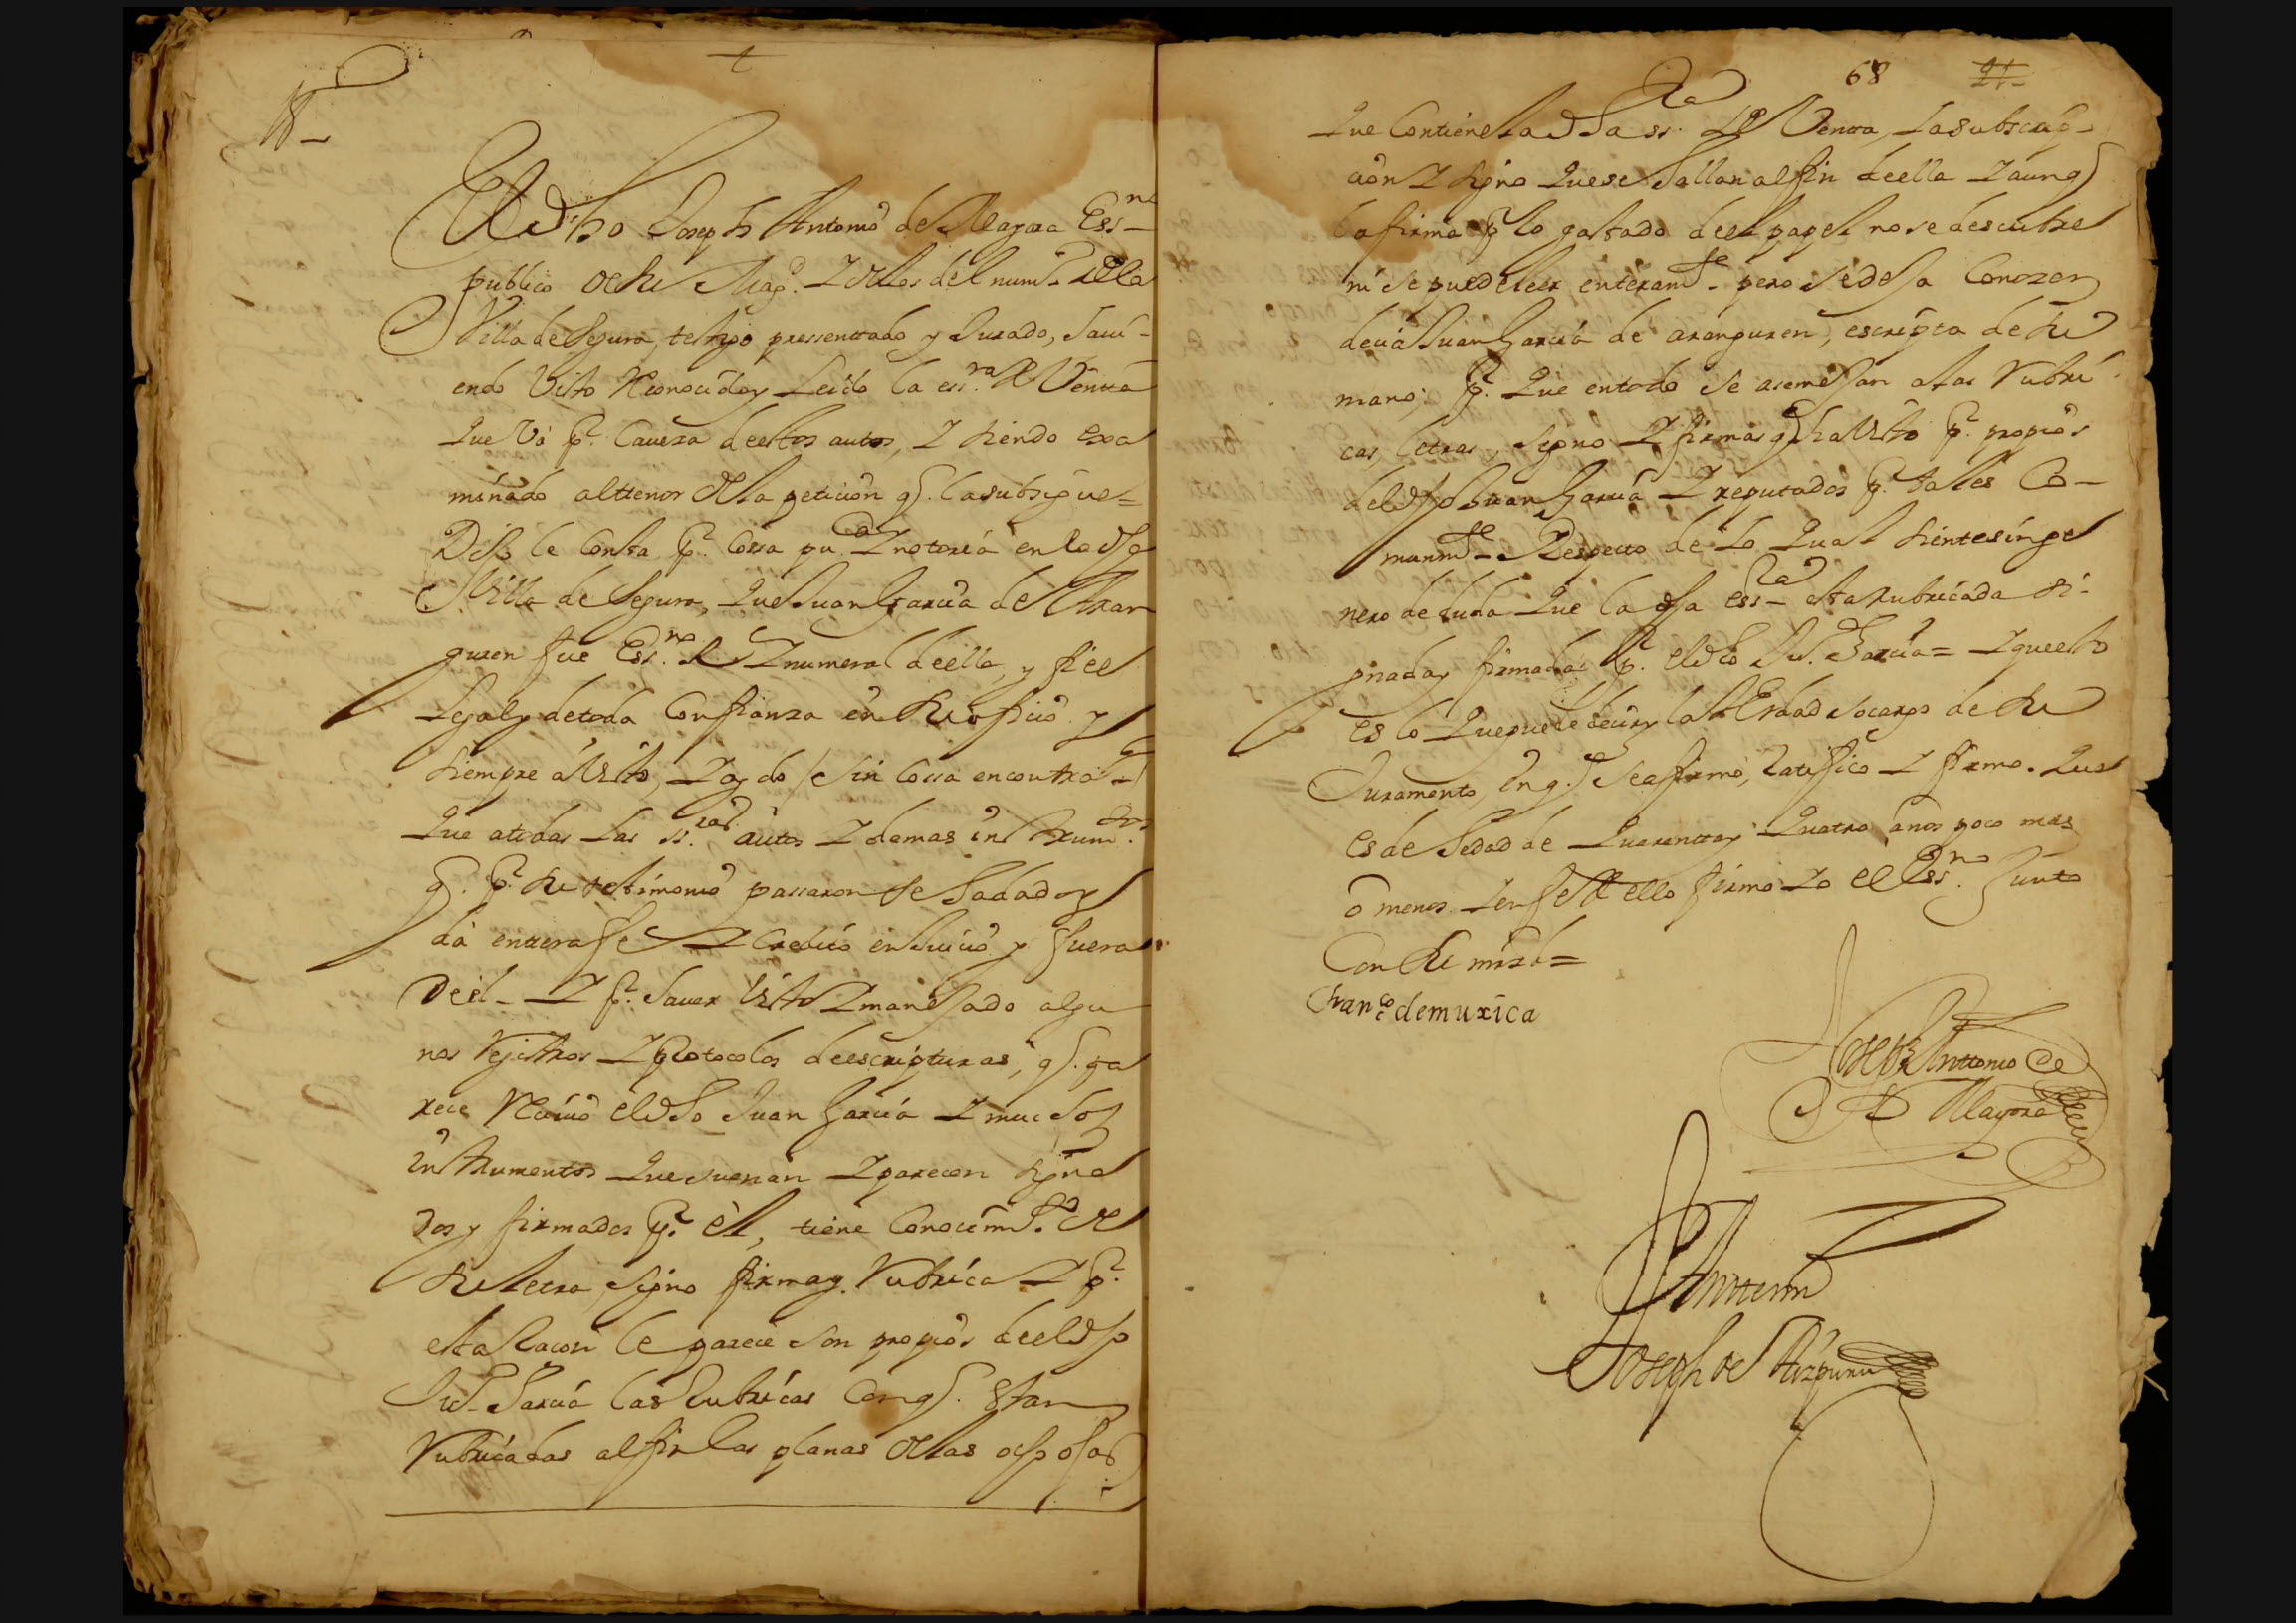 El dho Joseph Antonio de Mayora Ess.no
publico de su Mag.d y de los del num.o de la
Villa de Segura, testigo pressenttado y Jurado, haui-
endo visto reconocido y leido la ess.ra de Ventta
que va p.r caueza de estos autos, y siendo exa
minado al ttenor de la peticion q.e la subsigue=
Dijo le consta p.r cossa pu.ca y notoria en la dha
Villa de Segura, que Juan Garcia de Aran
guren fue Ess.no R.l y numeral de ella, y fiel
legal y de toda confianza en su oficio y
siempre a visto, y oydo sin cossa en contra.o
que a todas las ss.ras autos y demas instrum.tos
q.e p.r su testimonio passaron se ha dado y
da enttera fe y credito en Juicio y fuera
de el - y p.r hauer visto y manejado algu
nos rejistros y protocolos de escripturas, q.e pa
rece reciuio el dho Juan Garcia y muchos
instrumentos que suenan y parecen signa
dos y firmados p.r el, tiene conocim.to de
su letra, signo firma y rubrica y p.r
esta racon le parece son propios de el dho
Ju.o Garcia las rubricas con q.e estan
rubricadas al fin las planas de las ocho ojas
68 21
que contiene la dha ss.ra de Ventta, la subscrip-
cion y signo que se hallan al fin de ella y aunq.e
la firma p.r lo gastado de el papel no se descubre
ni se puede leer enteram.te pero se deja conozer
decia Juan Garcia de aranguren, escripta de su
mano; p.r que en todo se asemejan a las rubri-
cas, letras, signo y firmas q.e ha visto p.r propios
del dho Juan Garcia y reputados p.r tales Co-
munm.te Respecto de lo qual siente sin ge
nero de duda que la dha ess.ra esta rubricada si-
gnada y firmada p.r el dho Ju.o Garcia= y que esto
es lo que puede decir y la verdad so cargo de su
Juramento, en q.e se afirmo, ratifico y firmo. que
es de hedad de quarentta y quatro años poco mas
o menos y en fe de ello firmo yo el Ess.no Junto
con su mrd=
Fran.co de muxica
Joseph Anttonio de
Mayora
Antte mi
Joseph de Aizpuru